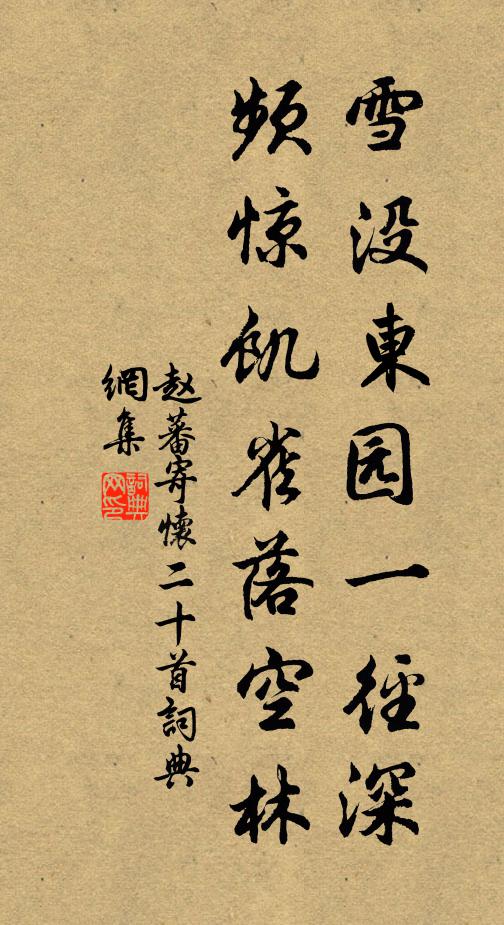 雪没東园一徑深
頻惊飢雀落空林
赵蕃寄懷二十首詞典
網集
詞典
网印